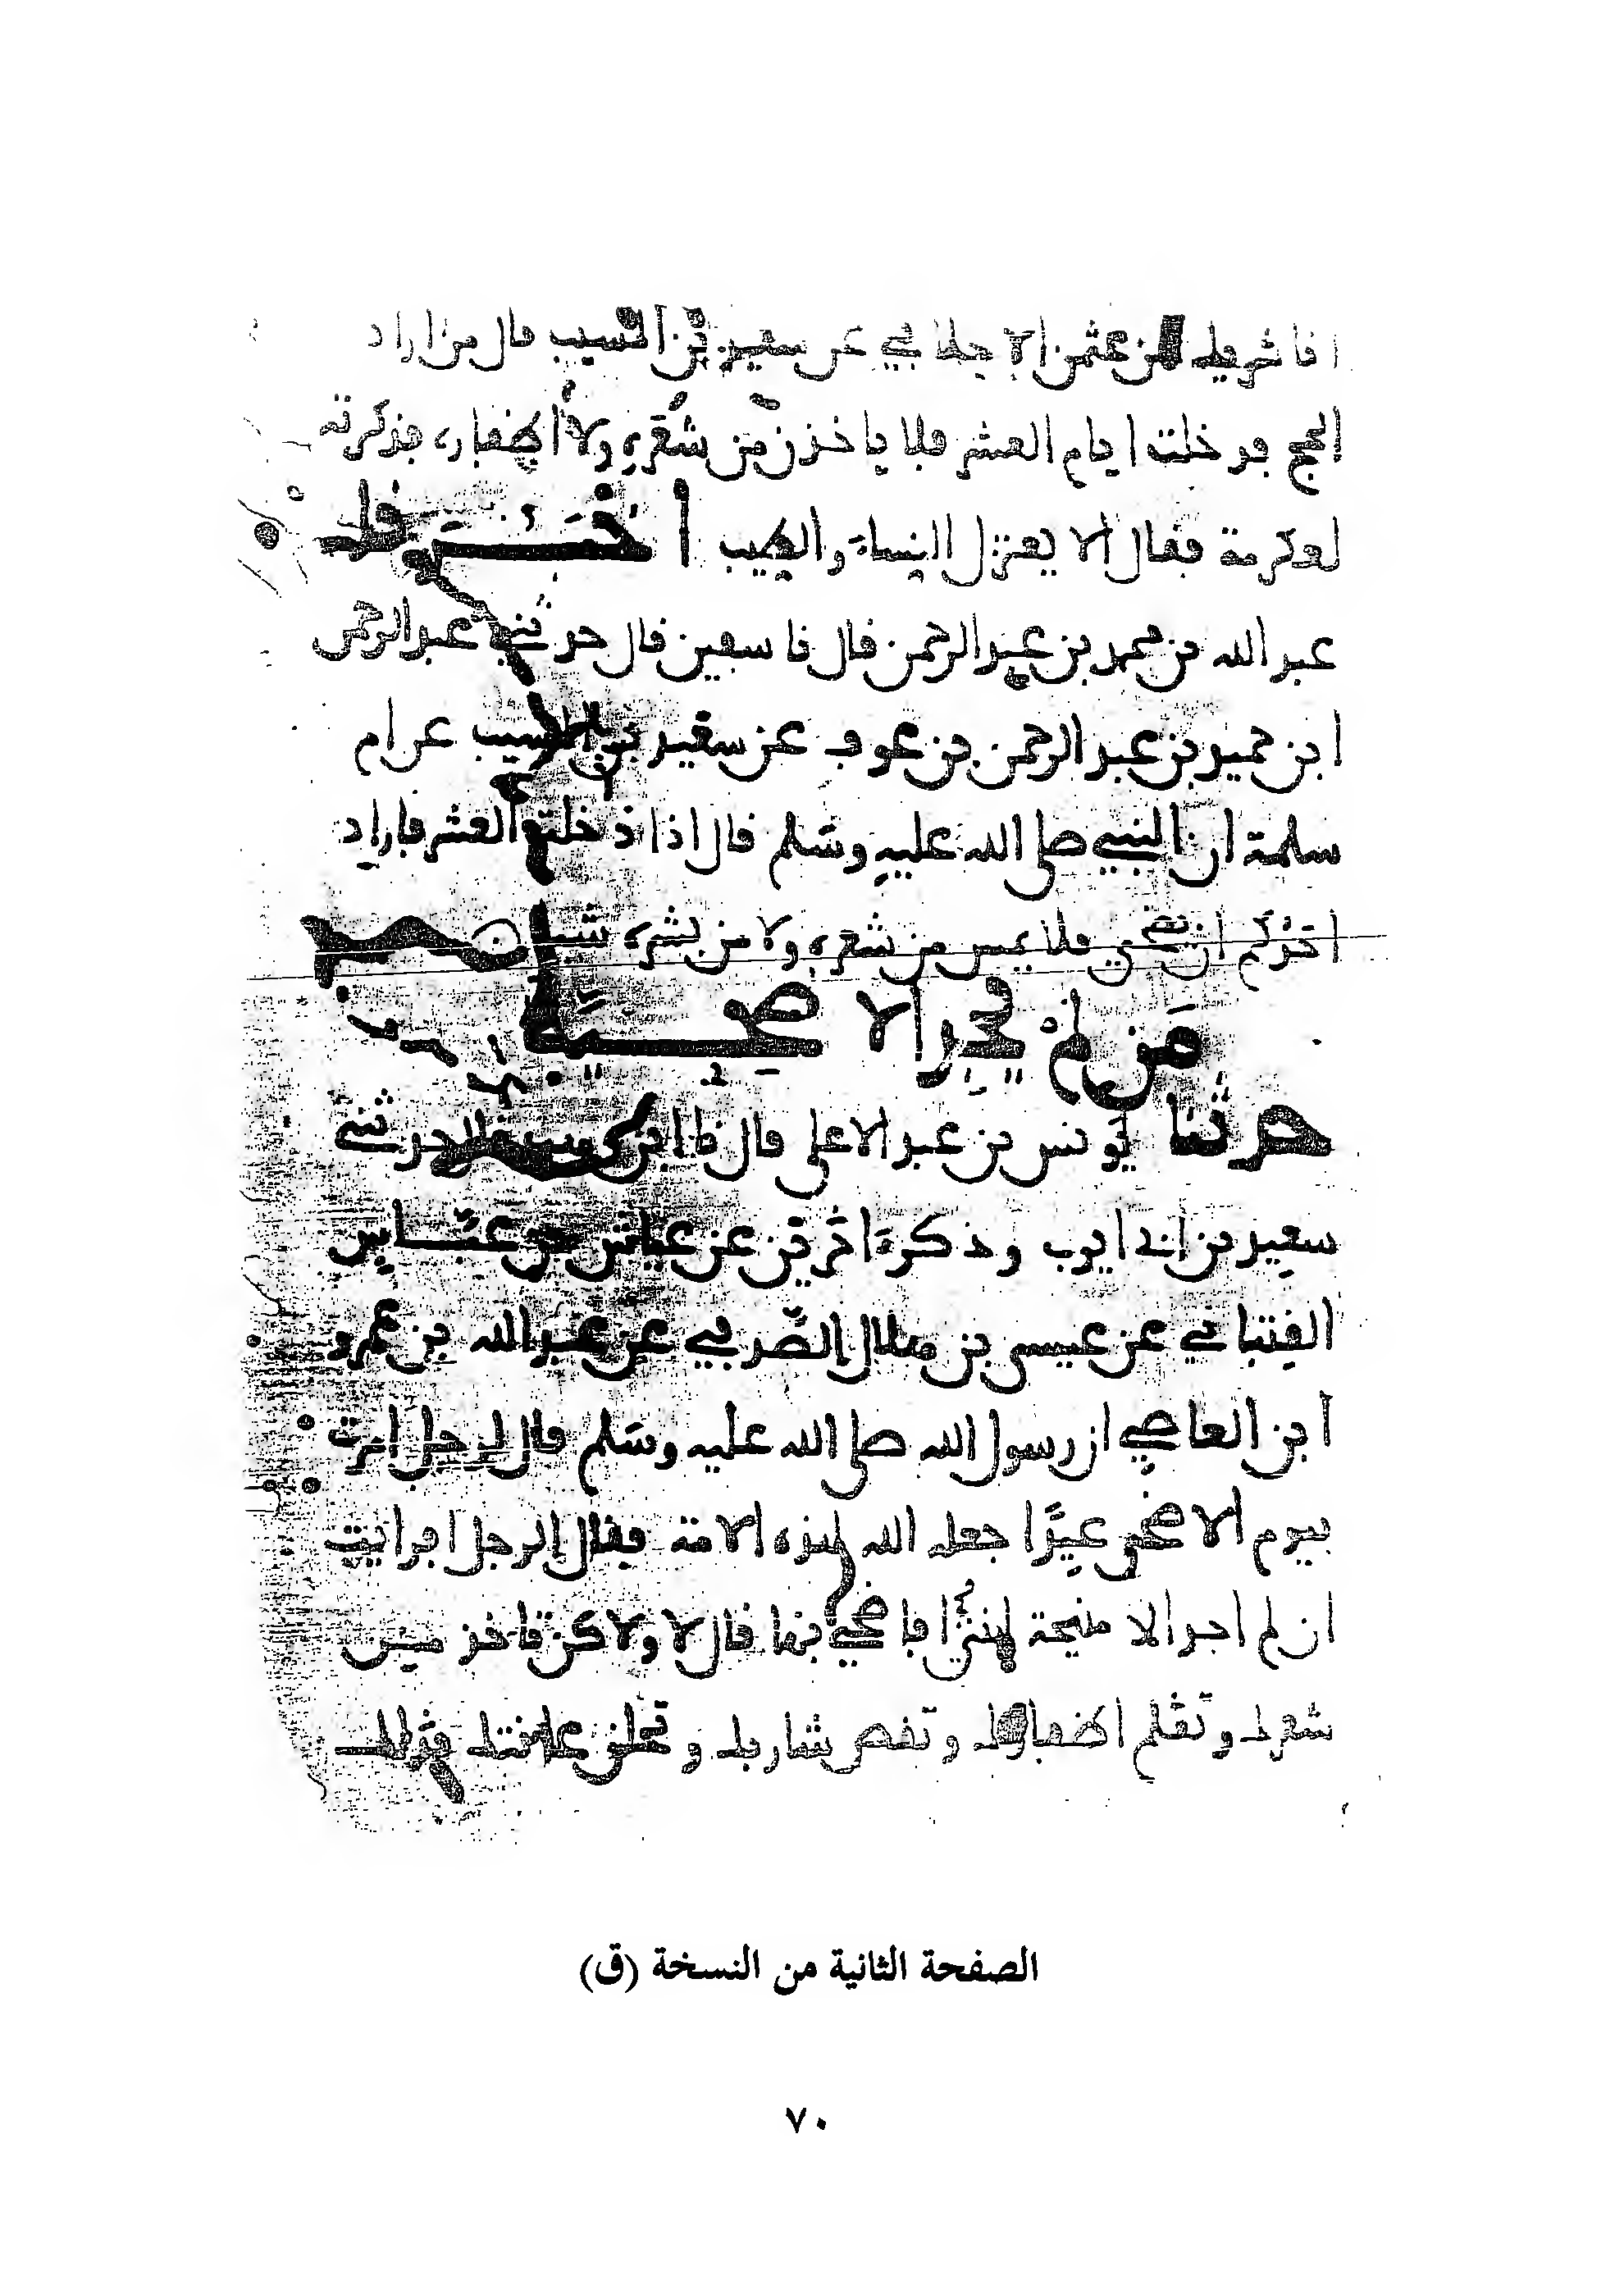 انا شريك عن عثمن الاحلافي عن سعيد بن المسيب قال من اراد
الحج فدخلت ايام العشر فلا ياخذن من شعره ولا اظفاره فذكرته
لعكرمة فقال الا يعتزل النساء والطيب اخبرنا
عبد الله بن محمد بن عبد الرحمن قال نا سفين قال حدثني عبد الرحمن
ابن حميد بن عبد الرحمن بن عوف عن سعيد بن المسيب عن ام
سلمة ان النبي صلى الله عليه وسلم قال اذا دخلت العشر فاراد
احدكم ان يضحي فلا يمس من شعره ولا من بشره شيا
من لم يجد الاضحية
حدثنا يونس بن عبد الاعلى قال نا ابن وهب قال حدثني
سعيد بن ابي ايوب وذكر اخرين عن عياش بن عباس
القتباني عن عيسى بن هلال الصدفي عن عبد الله بن عمرو
ابن العاصي ان رسول الله صلى الله عليه وسلم قال لرجل امرت
بيوم الاضحى عيدا جعله الله لهذه الامة فقال الرجل افرايت
ان لم اجد الا منيحة انثى افاضحي بها قال لا ولاكن تاخذ من
شعرك وتقلم اظفارك وتقص شاربك وتحلق عانتك فذلك
الصفحة الثانية من النسخة (ق)
٧٠